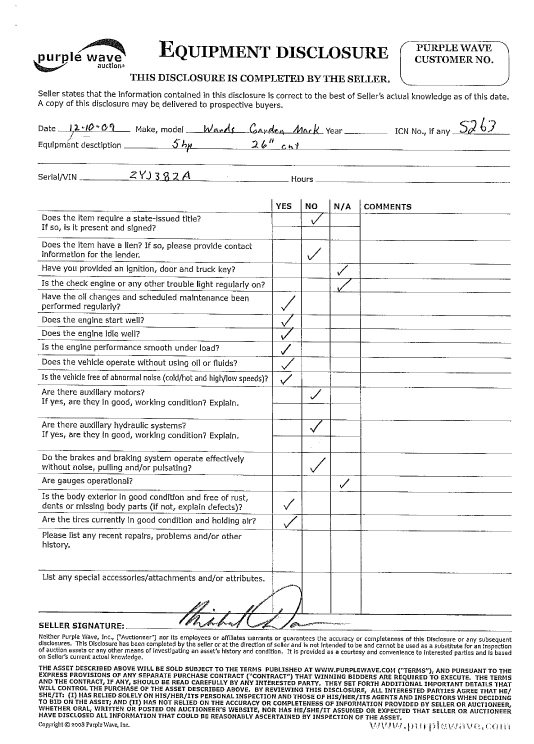 purple wave
auction
EQUIPMENT DISCLOSURE
PURPLE WAVE
CUSTOMER NO.
THIS DISCLOSURE IS COMPLETED BY THE SELLER.
Seller states that the information contained in this disclosure is correct to the best of Seller's actual knowledge as of this date.
A copy of this disclosure may be delivered to prospective buyers.
Date 12-10-09 Make, model Wards Garden Mark Year ICN No., if any 5263
Equipment desctiption 5hp 26" cut
Serial/VIN 2YJ382A Hours
YES NO N/A COMMENTS
Does the item require a state-issued title?
If so, is it present and signed?
Does the item have a lien? If so, please provide contact
information for the lender.
Have you provided an ignition, door and truck key?
Is the check engine or any other trouble light regularly on?
Have the oil changes and scheduled maintenance been
performed regularly?
Does the engine start well?
Does the engine idle well?
Is the engine performance smooth under load?
Does the vehicle operate without using oil or fluids?
Is the vehicle free of abnormal noise (cold/hot and high/low speeds)?
Are there auxiliary motors?
If yes, are they in good, working condition? Explain.
Are there auxiliary hydraulic systems?
If yes, are they in good, working condition? Explain.
Do the brakes and braking system operate effectively
without noise, pulling and/or pulsating?
Are gauges operational?
Is the body exterior in good condition and free of rust,
dents or missing body parts (if not, explain defects)?
Are the tires currently in good condition and holding air?
Please list any recent repairs, problems and/or other
history.
List any special accessories/attachments and/or attributes.
SELLER SIGNATURE:
Neither Purple Wave, Inc., ("Auctioneer") nor its employees or affiliates warrants or guarantees the accuracy or completeness of this Disclosure or any subsequent
disclosures. This Disclosure has been completed by the seller or at the direction of seller and is not intended to be and cannot be used as a substitute for an inspection
of auction assets or any other means of investigating an asset's history and condition. It is provided as a courtesy and convenience to interested parties and is based
on Seller's current actual knowledge.
THE ASSET DESCRIBED ABOVE WILL BE SOLD SUBJECT TO THE TERMS PUBLISHED AT WWW.PURPLEWAVE.COM ("TERMS"), AND PURSUANT TO THE
EXPRESS PROVISIONS OF ANY SEPARATE PURCHASE CONTRACT ("CONTRACT") THAT WINNING BIDDERS ARE REQUIRED TO EXECUTE. THE TERMS
AND THE CONTRACT, IF ANY, SHOULD BE READ CAREFULLY BY ANY INTERESTED PARTY. THEY SET FORTH ADDITIONAL IMPORTANT DETAILS THAT
WILL CONTROL THE PURCHASE OF THE ASSET DESCRIBED ABOVE. BY REVIEWING THIS DISCLOSURE, ALL INTERESTED PARTIES AGREE THAT HE/
SHE/IT: (I) HAS RELIED SOLELY ON HIS/HER/ITS PERSONAL INSPECTION AND THOSE OF HIS/HER/ITS AGENTS AND INSPECTORS WHEN DECIDING
TO BID ON THE ASSET; AND (II) HAS NOT RELIED ON THE ACCURACY OR COMPLETENESS OF INFORMATION PROVIDED BY SELLER OR AUCTIONEER,
WHETHER ORAL, WRITTEN OR POSTED ON AUCTIONEER'S WEBSITE, NOR HAS HE/SHE/IT ASSUMED OR EXPECTED THAT SELLER OR AUCTIONEER
HAVE DISCLOSED ALL INFORMATION THAT COULD BE REASONABLY ASCERTAINED BY INSPECTION OF THE ASSET.
Copyright © 2008 Purple Wave, Inc.
www.purplewave.com